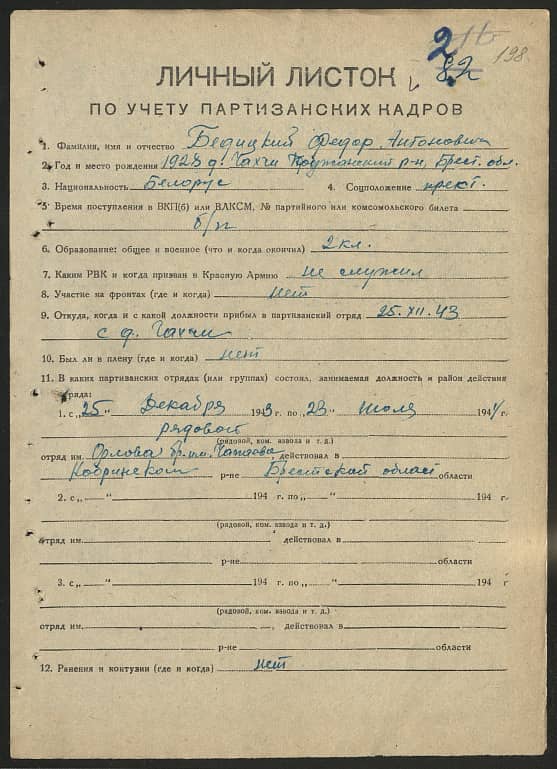 198
82
ЛИЧНЫЙ ЛИСТОК
ПО УЧЕТУ ПАРТИЗАНСКИХ КАДРОВ
1. Фамилия, имя и отчество Бедицкий Федор Антонович
2. Год и место рождения 1928 д. Чахчи Пружанский р-н, Брест. обл.
3. Национальность Белорус 4. Соцположение крест.
5. Время поступления в ВКП(б) или ВЛКСМ, № партийного или комсомольского билета
б/п
6. Образование: общее и военное (что и когда окончил) 2 кл.
7. Каким РВК и когда призван в Красную Армию не служил
8. Участие на фронтах (где и когда) нет
9. Откуда, когда и с какой должности прибыл в партизанский отряд 25.XII.43
с д. Чахчи
10. Был ли в плену (где и когда) нет
11. В каких партизанских отрядах (или группах) состоял, занимаемая должность и район действия
отряда:
1. с „25" Декабря 1943 г. по „23" июля 1944 г.
рядовой
(рядовой, ком. взвода и т. д.)
отряд им. Орлова бр. им. Чапаева, действовал в
Кобринском р-не Брестской област области
2. с „ " 194 г. по „ " 194 г.
(рядовой, ком. взвода и т. д.)
отряд им. действовал в
р-не области
3. с „ " 194 г. по „ " 194 г
(рядовой, ком. взвода и т. д.)
отряд им. , действовал в
р-не области
12. Ранения и контузии (где и когда) нет